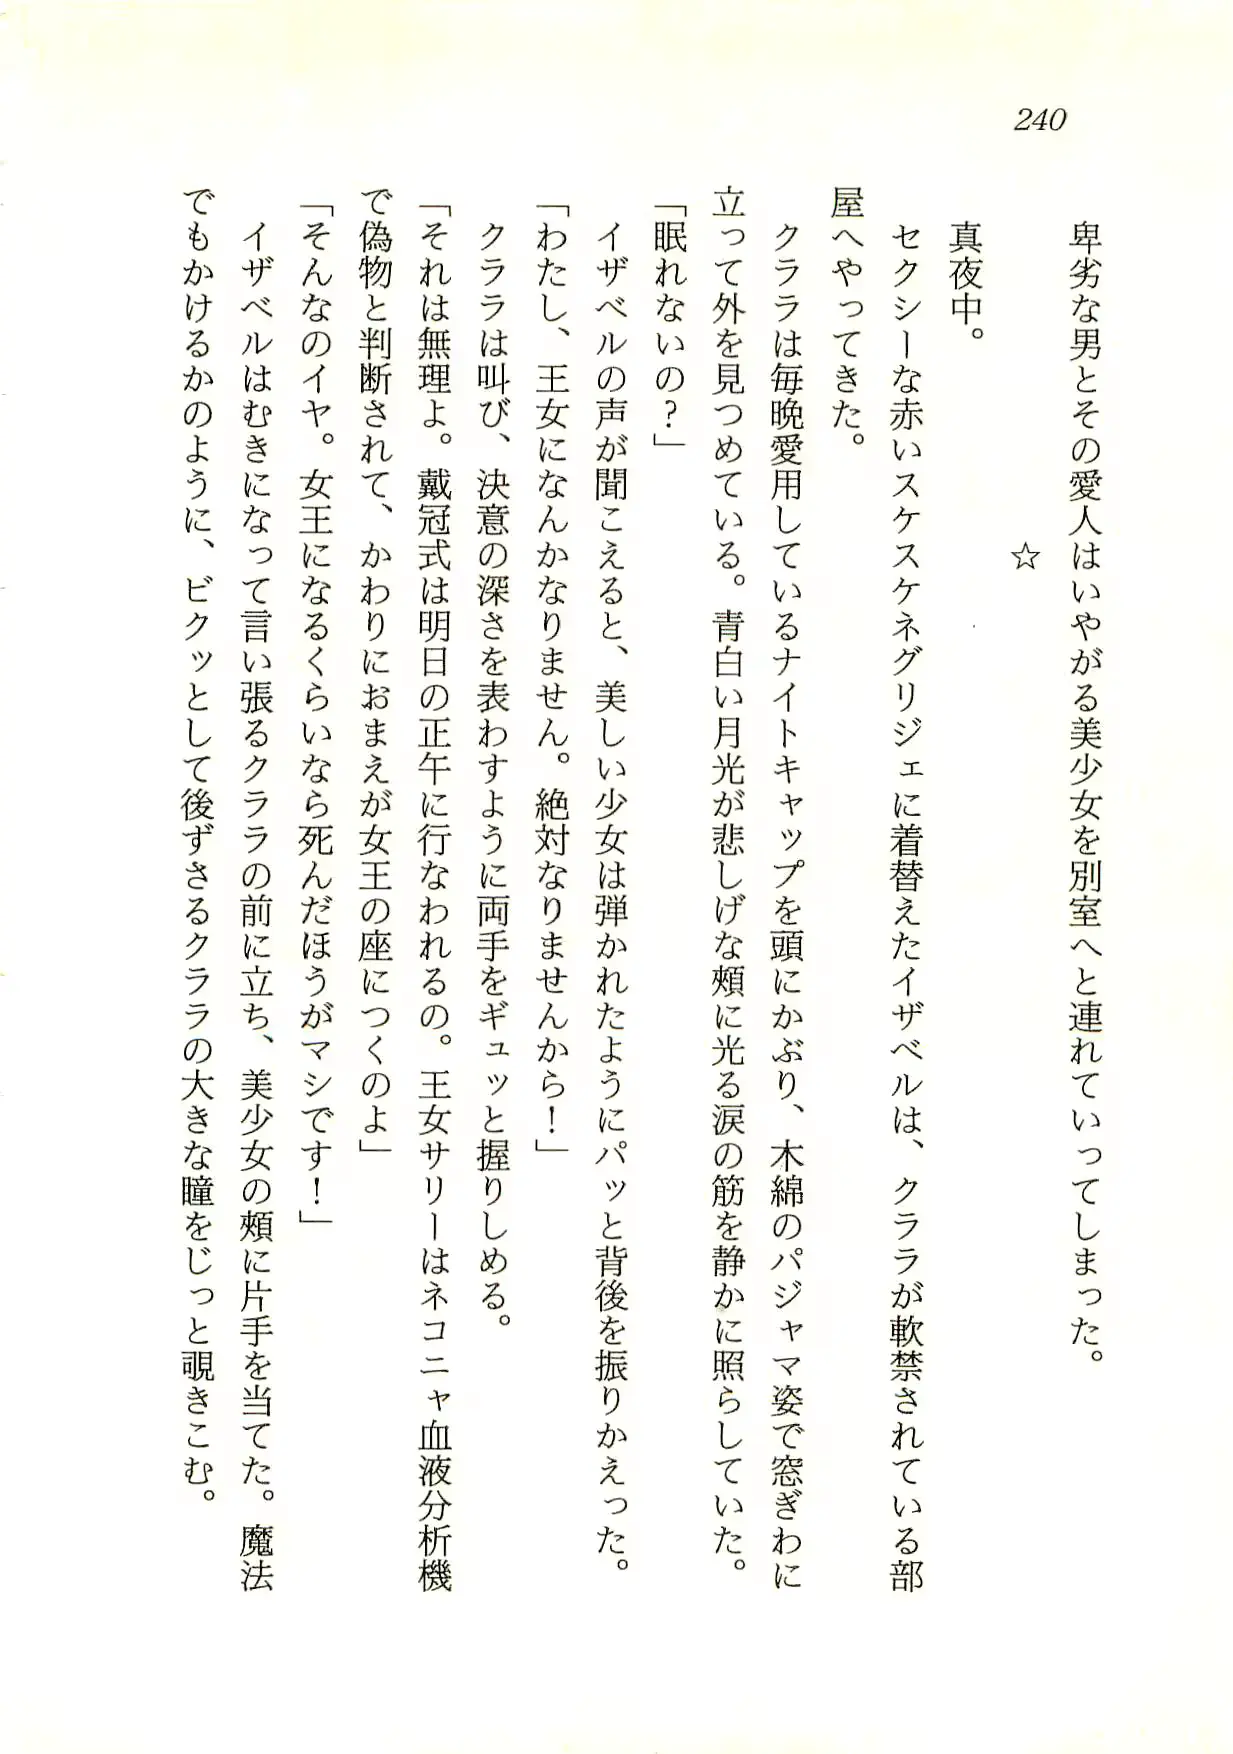 240
卑劣な男とその愛人はいやがる美少女を別室へと連れていってしまった。
☆
真夜中。
セクシーな赤いスケスケネグリジェに着替えたイザベルは、クララが軟禁されている部
屋へやってきた。
クララは毎晩愛用しているナイトキャップを頭にかぶり、木綿のパジャマ姿で窓ぎわに
立って外を見つめている。青白い月光が悲しげな頰に光る涙の筋を静かに照らしていた。
「眠れないの？」
イザベルの声が聞こえると、美しい少女は弾かれたようにパッと背後を振りかえった。
「わたし、王女になんかなりません。絶対なりませんから！」
クララは叫び、決意の深さを表わすように両手をギュッと握りしめる。
「それは無理よ。戴冠式は明日の正午に行なわれるの。王女サリーはネコニャ血液分析機
で偽物と判断されて、かわりにおまえが女王の座につくのよ」
「そんなのイヤ。女王になるくらいなら死んだほうがマシです！」
イザベルはむきになって言い張るクララの前に立ち、美少女の頰に片手を当てた。魔法
でもかけるかのように、ビクッとして後ずさるクララの大きな瞳をじっと覗きこむ。